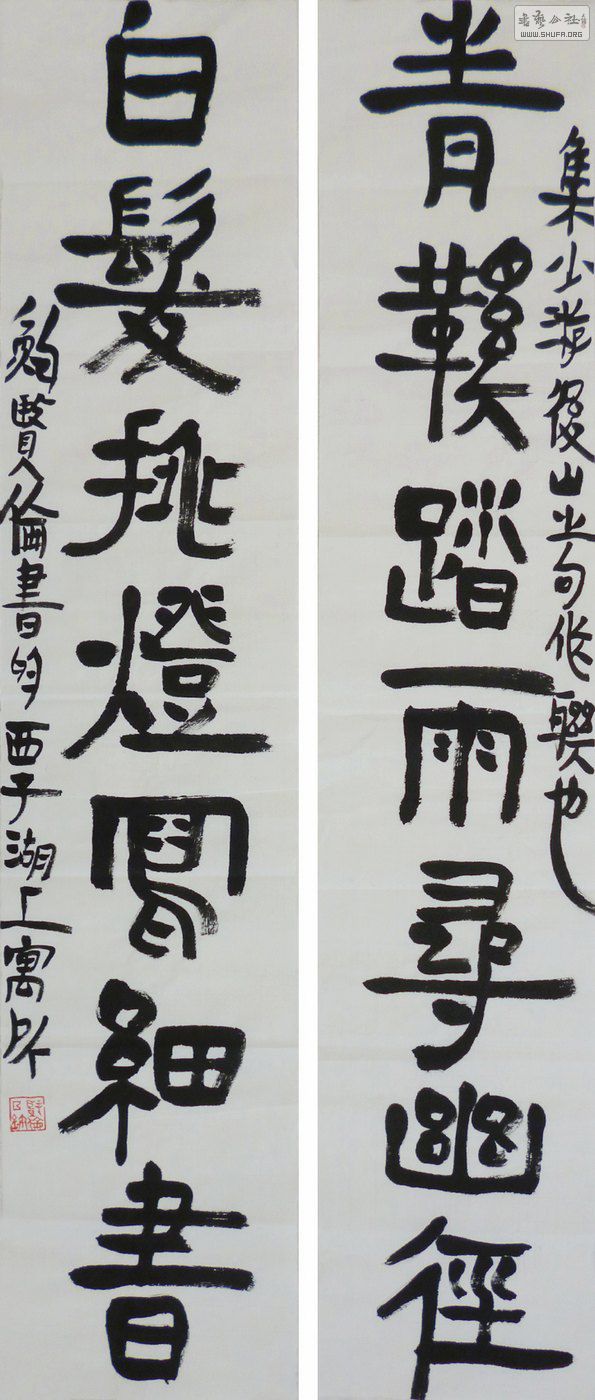 青鞵踏雨尋幽徑
集少游後山之句作聯也
白髮挑燈寫細書
鮑賢倫書於西子湖上寓所
書藝公社
WWW.SHUFA.ORG